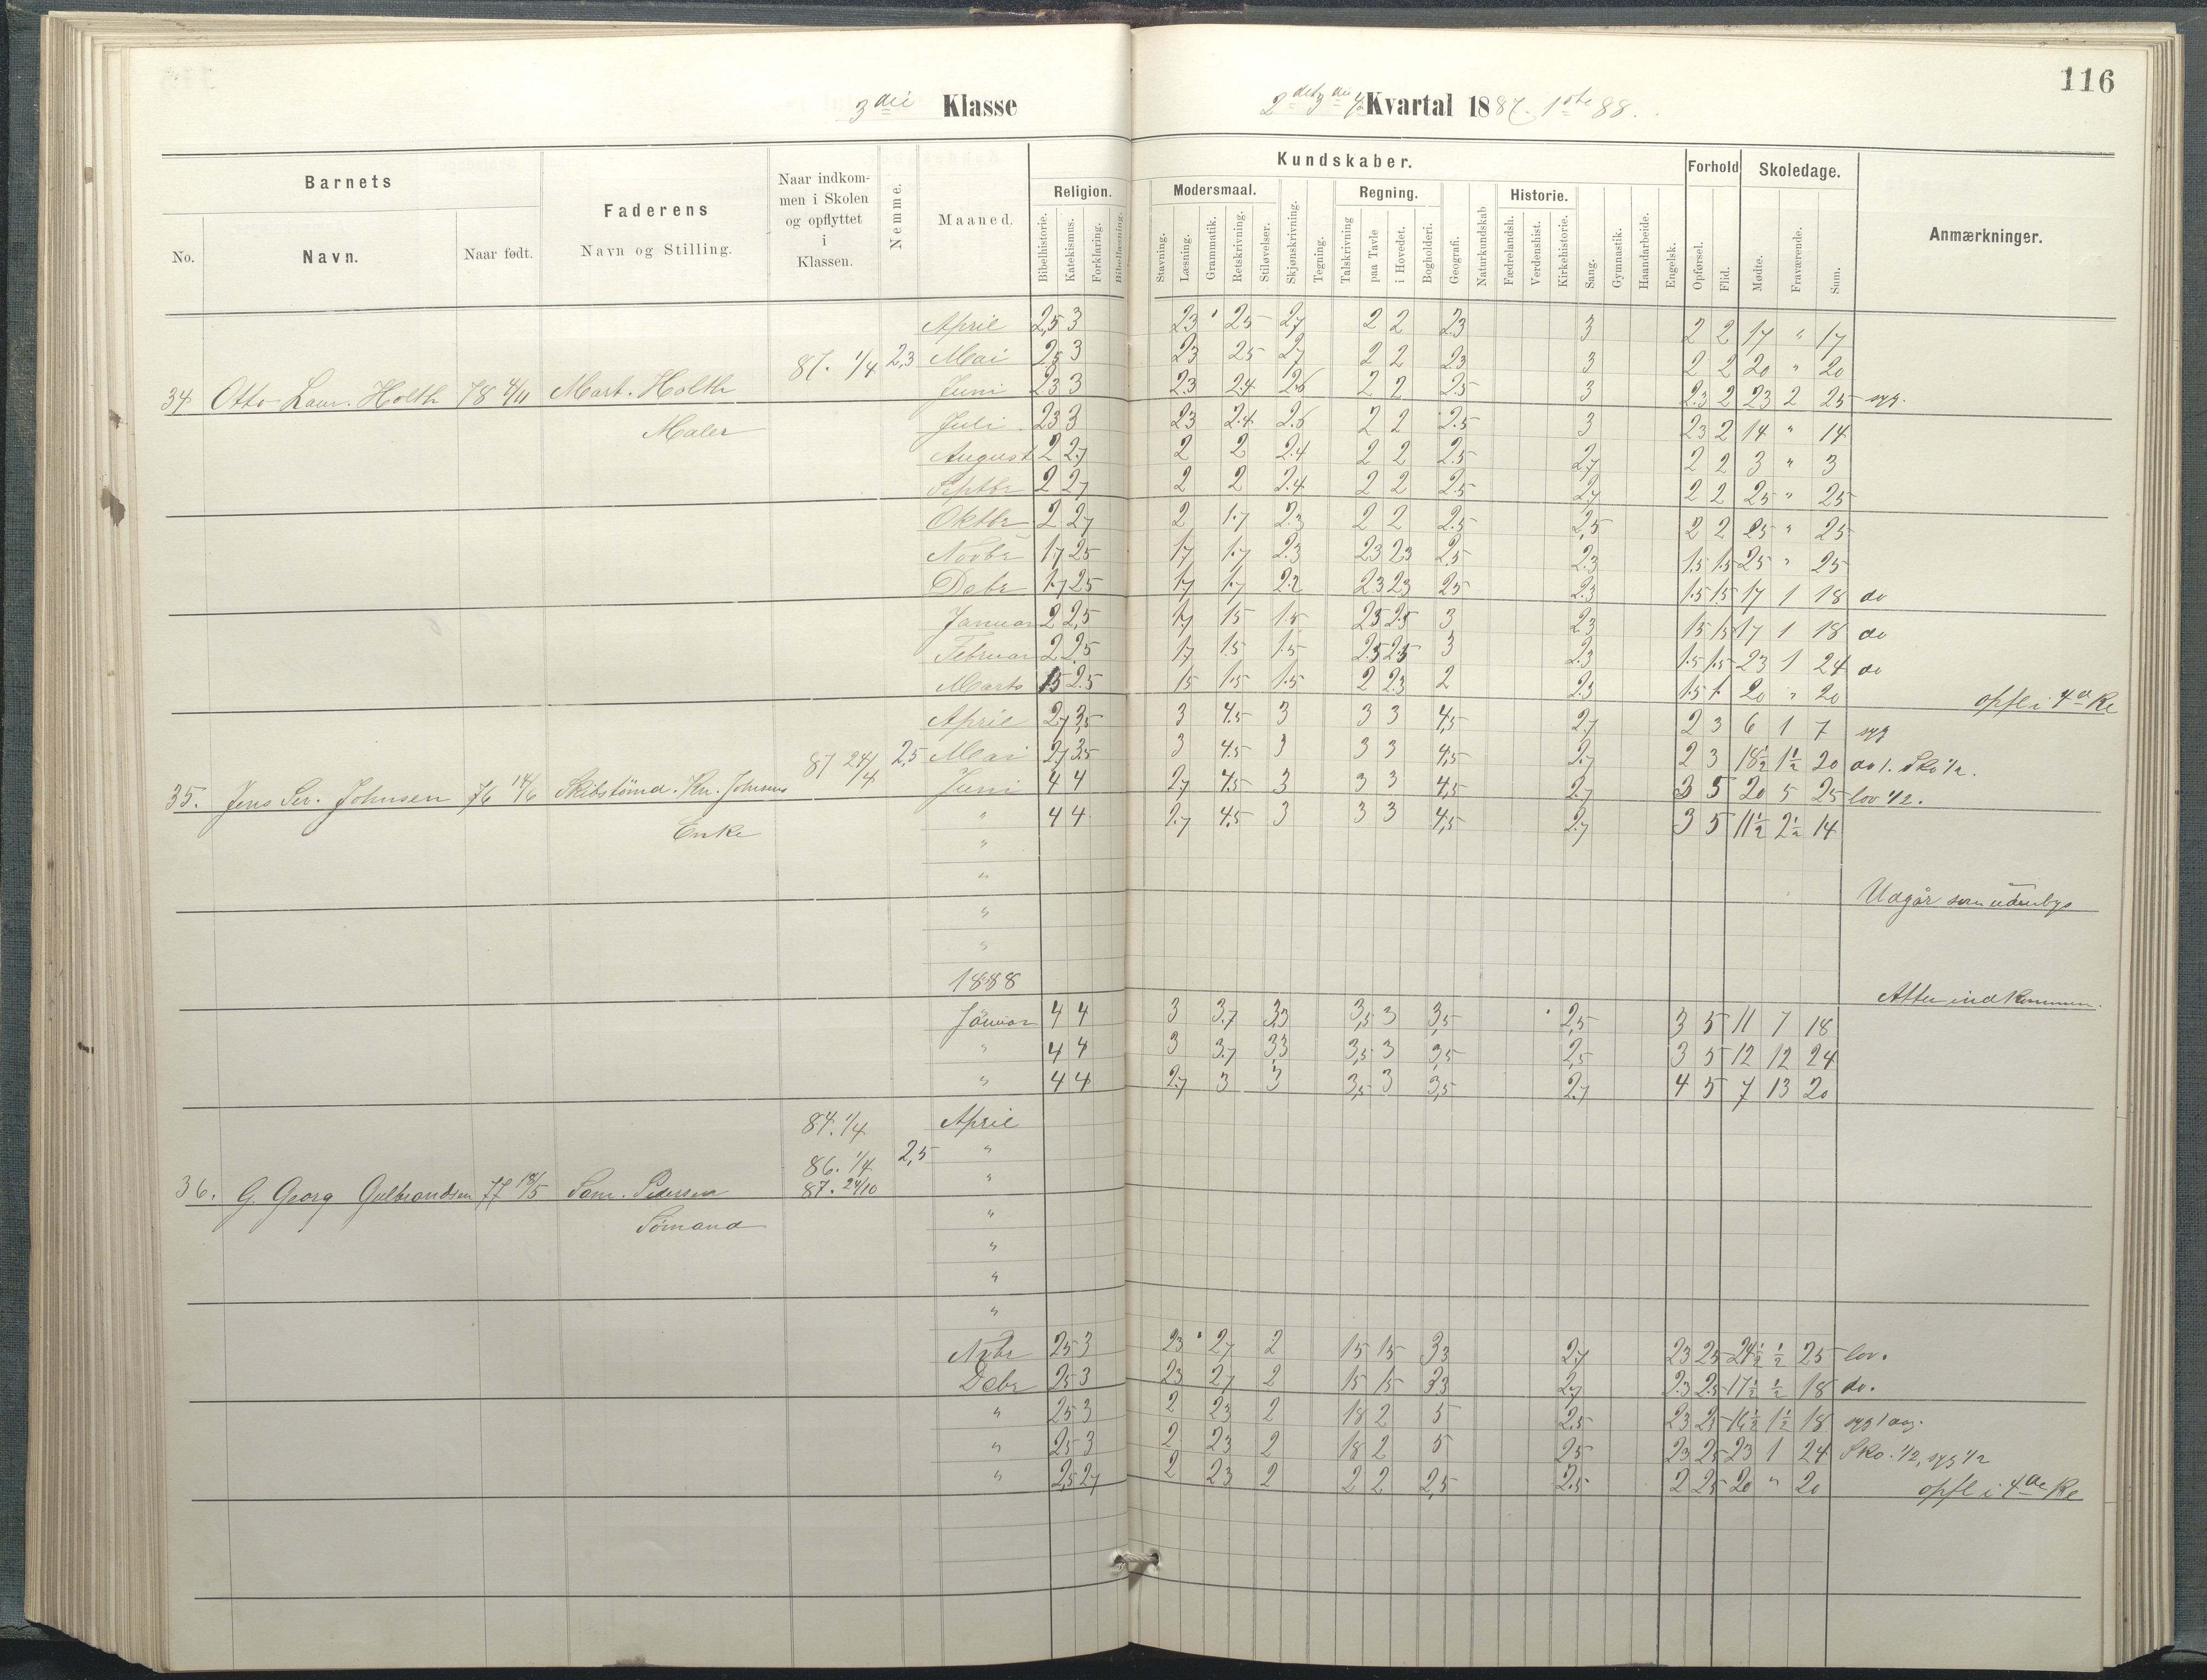 116
3die Klasse
2det 3die 4 Kvartal 1887. 1ste 88.
Barnets
No.
Navn.
Naar født.
Faderens
Navn og Stilling.
Naar indkom-
men i Skolen
og opflyttet
i
Klassen.
Nemme.
Maaned.
Kundskaber.
Religion.
Bibelhistorie.
Katekismus.
Forklaring.
Bibellæsning.
Modersmaal.
Stavning.
Læsning.
Grammatik.
Retskrivning.
Stiløvelser.
Skjønskrivning.
Tegning.
Regning.
Talskrivning
paa Tavle
i Hovedet.
Bogholderi.
Geografi.
Naturkundskab
Historie.
Fædrelandsh.
Verdenshist.
Kirkehistorie.
Sang.
Gymnastik.
Haandarbeide.
Engelsk.
Forhold
Opførsel.
Flid.
Skoledage.
Mødte.
Fraværende.
Sum.
Anmærkninger.
April 2,5 3 23 25 27 2 2 23 3 2 2 17 " 17
87. 1/4 2,3 Mai 25 3 23 25 27 2 2 23 3 2 2 20 " 20
34 Otto Laur. Holth 78 4/11 Mart. Holth Juni 23 3 23 24 26 2 2 25 3 2.3 2 23 2 25 syg.
Maler Juli 23 3 23 2.4 2.6 2 2 2.5 3 23 2 14 " 14
August 2 27 2 2 2.4 2 2 2.5 27 2 2 3 " 3
Septbr 2 27 2 2 2.4 2 2 2.5 27 2 2 25 " 25
Oktbr 2 27 2 1.7 2.3 2 2 2.5 2,5 2 2 25 " 25
Novbr 17 25 17 1.7 2.3 23 23 2,5 2.3 1.5 1.5 25 " 25
Debr 1.7 25 17 1.7 2.2 23 23 25 2.3 1.5 1.5 17 1 18 do
Januar 2 2,5 1.7 15 1.5 25 2.5 3 23 15 15 17 1 18 do
Februar 2 2.5 17 1.5 1.5 2.5 25 3 2.3 1.5 1.5 23 1 24 do
Marts 15 2.5 15 1.5 1.5 2 2.3 2 2.3 1.5 1. 20 " 20 opfl i 4de Kl
April 27 3,5 3 4.5 3 3 3 4,5 2.7 2 3 6 1 7 syg
87 24/4 2,5 Mai 27 3.5 3 4.5 3 3 3 4,5 2.7 2 3 18½ 1½ 20 do 1. Sko ½.
35. Jens Sev. Johnsen 76 14/6 Skibstømd. Kr. Johnsens Juni 4 4 27 4.5 3 3 3 4,5 2.7 3 5 20 5 25 lov ½.
Enke " 4 4 2.7 4.5 3 3 3 4,5 2.7 3 5 11½ 2½ 14
"
"
Udgår som udenbys
"
"
1888
Atter indkommen.
Januar 4 4 3 3.7 3,3 3,5 3 3,5 2,5 3 5 11 7 18
" 4 4 3 3.7 3,3 3,5 3 3,5 2,5 3 5 12 12 24
" 4 4 2.7 3 3 3,5 3 3,5 2.7 4 5 7 13 20
84. 1/4 April
86. 1/4 2,5 "
36. G. Georg Gulbrandsen 77 19/5 Sam. Pedersen 87. 24/10 "
Sømand "
"
"
"
Nvbr 25 3 23 27 2 15 15 33 2.7 23 25 24½ ½ 25 lov.
Debr 25 3 23 27 2 15 15 33 27 2.3 2.5 17½ ½ 18 do.
" 25 3 2 23 2 18 2 5 2.5 23 25 16½ 1½ 18 syg 1 dag.
" 25 3 2 23 2 18 2 5 25 23 25 23 1 24 Sko. ½, syg ½
" 2,5 27 2 23 2 2 2 2,5 2.5 2 25 20 " 20 opfl i 4de Kl